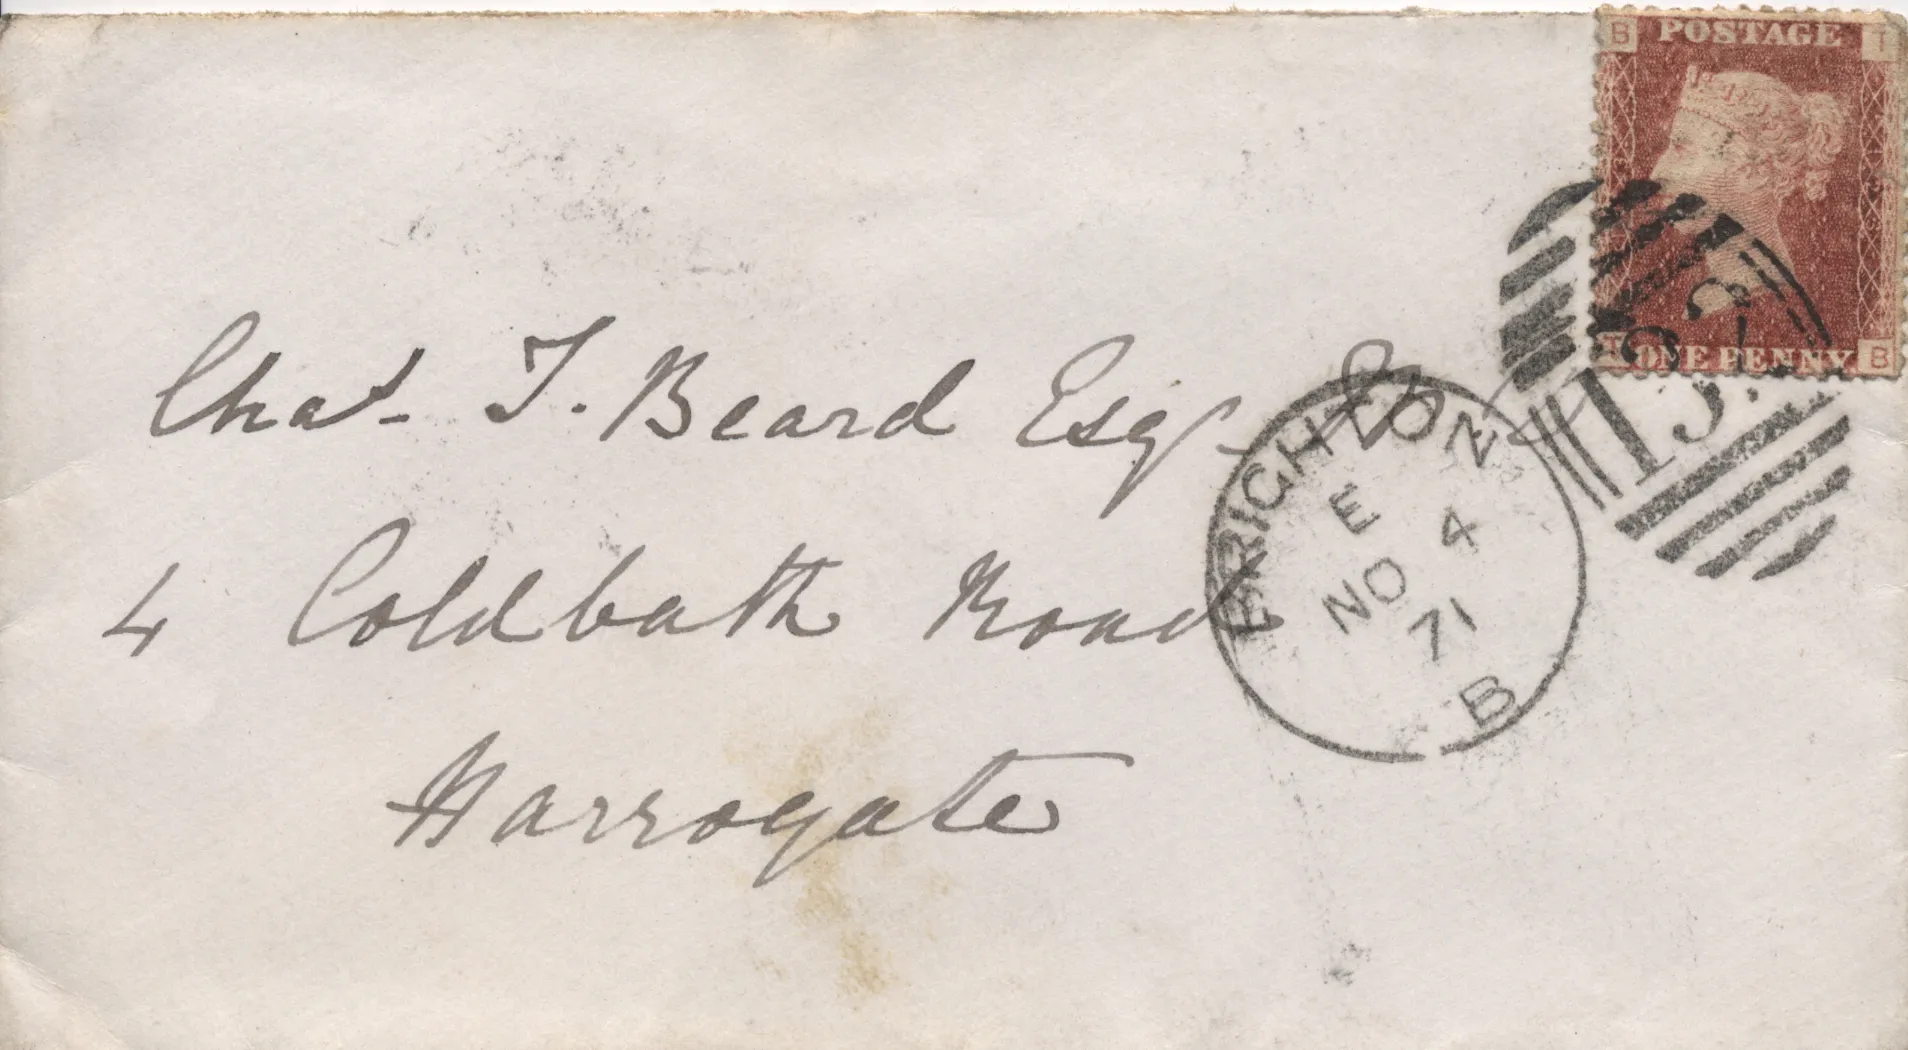 B POSTAGE T
T ONE PENNY B
BRIGHTON
E
NO 4
71
B
Chas. T. Beard Esqr. Jr
4 Coldbath Road
Harrogate